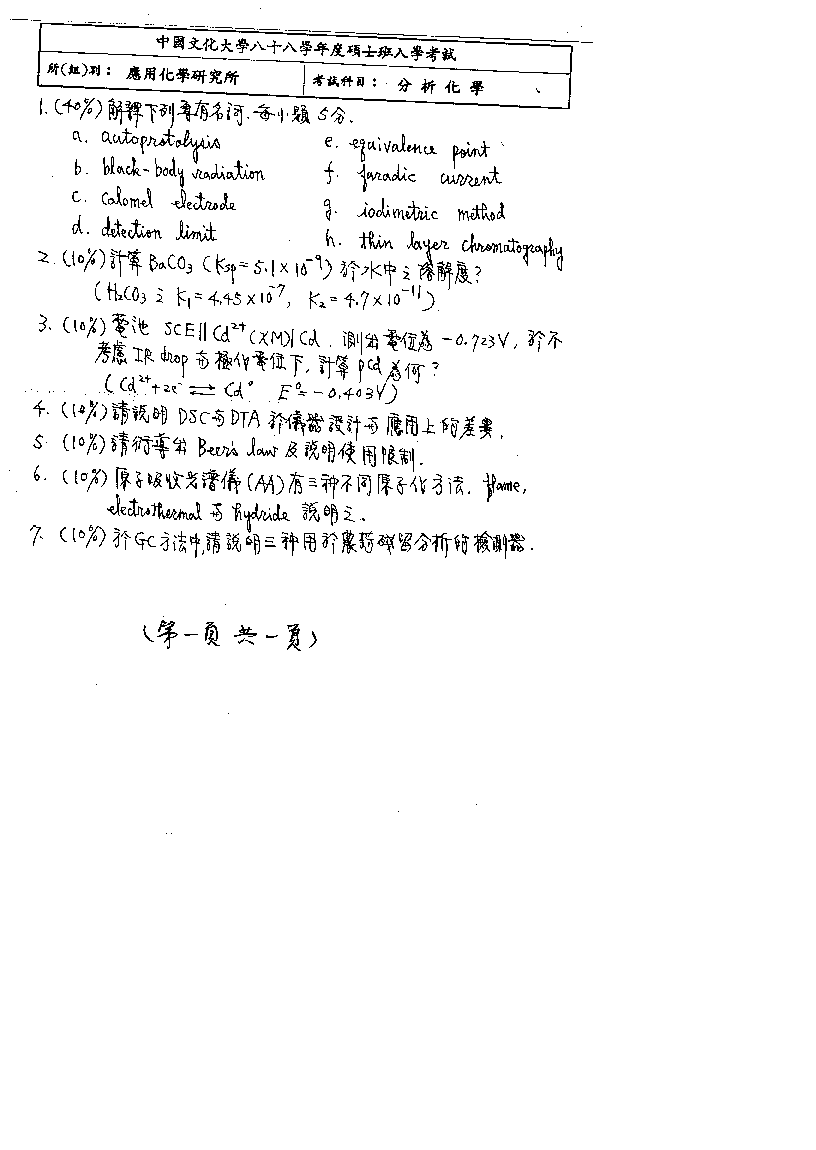 中國文化大學八十八學年度碩士班入學考試
所(組)別： 應用化學研究所 考試科目： 分析化學
1. (40%) 解釋下列專有名詞. 每小題 5分.
a. autoprotolysis e. equivalence point
b. black-body radiation f. faradic current
c. calomel electrode g. iodimetric method
d. detection limit h. thin layer chromatography
2. (10%) 計算 BaCO₃ (Ksp = 5.1 × 10⁻⁹) 於水中之溶解度?
(H₂CO₃ 之 K₁ = 4.45 × 10⁻⁷, K₂ = 4.7 × 10⁻¹¹)
3. (10%) 電池 SCE‖Cd²⁺(XM)|Cd. 測出電位為 -0.723V, 於不
考慮 IR drop 与極化電位下, 計算 pCd 為何?
(Cd²⁺+2e⁻ ⇌ Cd⁰ E⁰ = -0.403V)
4. (10%) 請說明 DSC 与 DTA 於儀器設計与應用上的差異.
5. (10%) 請衍導出 Beer's law 及說明使用限制.
6. (10%) 原子吸收光譜儀 (AA) 有三种不同原子化方法. flame,
electrothermal 与 hydride 說明之.
7. (10%) 於 GC 方法中, 請說明三种用於農藥殘留分析的檢測器.
(第一頁 共一頁)